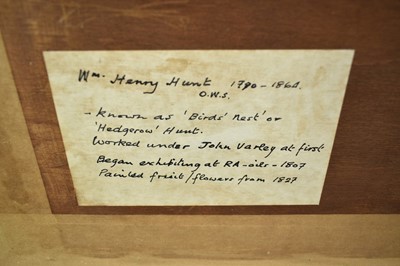 Wm. Henry Hunt 1790-1864.
O.W.S.
- Known as 'Birds' Nest' or
'Hedgerow' Hunt.
Worked under John Varley at first
Began exhibiting at RA-oils-1807
Painted fruit/flowers from 1827